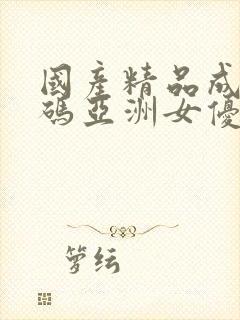 國產精品成
碼亞洲女優
箩纭